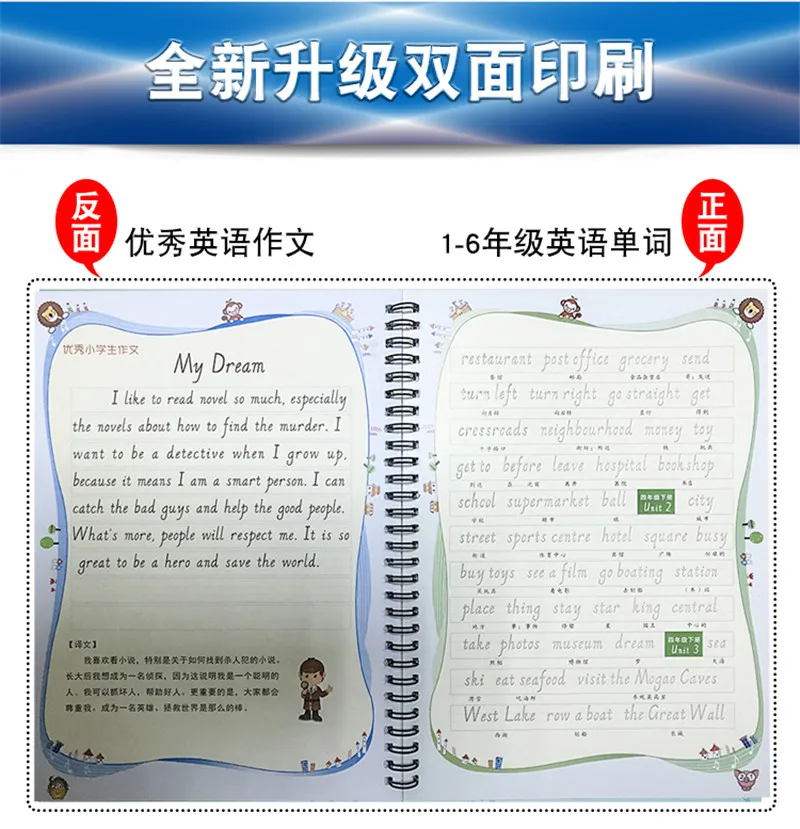 全新升级双面印刷
反面
优秀英语作文
1-6年级英语单词
正面
优秀小学生作文
My Dream
I like to read novel so much, especially
the novels about how to find the murder. I
want to be a detective when I grow up,
because it means I am a smart person. I can
catch the bad guys and help the good people.
What's more, people will respect me. It is so
great to be a hero and save the world.
【译文】
我喜欢看小说，特别是关于如何找到杀人犯的小说。
长大后我想成为一名侦探，因为这说明我是一个聪明的
人。我可以抓坏人，帮助好人。更重要的是，大家都会
尊重我。成为一名英雄、拯救世界是那么的棒。
restaurant post office grocery send
餐馆 邮局 食品杂货店 寄；发送
turn left turn right go straight get
向左转 向右转 直行 得到
crossroads neighbourhood money toy
十字路口 街坊；附近 钱 玩具
get to before leave hospital bookshop
到达 在…之前 离开 医院 书店
school supermarket ball 四年级下册 Unit 2 city
学校 超市 球 城市
street sports centre hotel square busy
街道 体育中心 宾馆 广场 忙碌的
buy toys see a film go boating station
买玩具 看电影 去划船 （车）站
place thing stay star king central
地方 事；事物 停留 星 国王 中心的
take photos museum dream 四年级下册 Unit 3 sea
照相 博物馆 梦 大海
ski eat seafood visit the Mogao Caves
滑雪 吃海鲜 参观莫高窟
West Lake row a boat the Great Wall
西湖 划船 长城